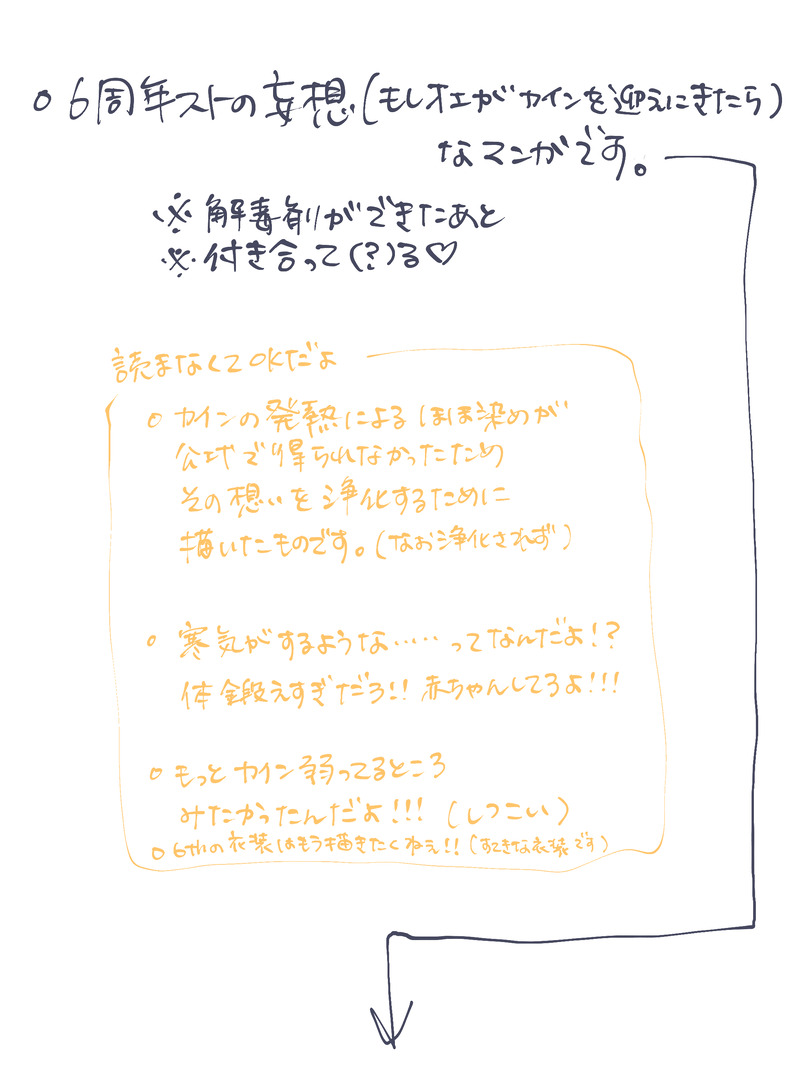 ○ 6周年ストの妄想(もしオエがカインを迎えにきたら)
なマンガです。
※ 解毒剤ができたあと
※ 付き合って(?)る♡
読まなくてOKだよ
○ カインの発熱によるほほ染めが
公式で得られなかったため
その想いを浄化するために
描いたものです。(なお浄化されず)
○ 寒気がするような……ってなんだよ!?
体鍛えすぎだろ!! 赤ちゃんしてろよ!!!
○ もっとカイン弱ってるところ
みたかったんだよ!!! (しつこい)
○ 6thの衣装はもう描きたくねえ!! (すてきな衣装です)